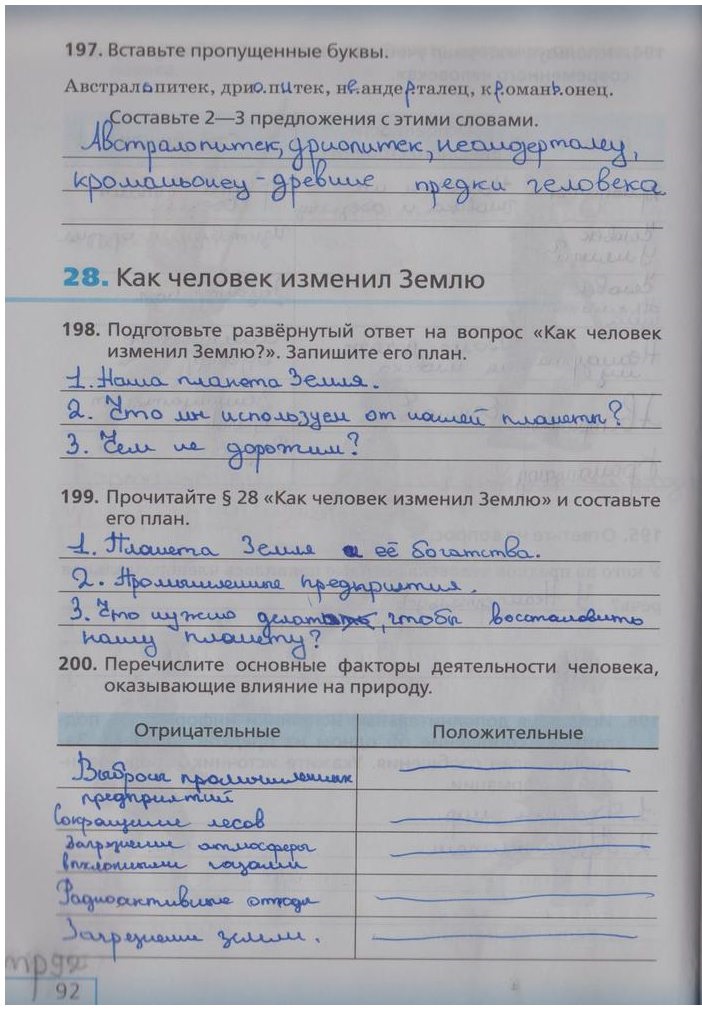 197. Вставьте пропущенные буквы.
Австральпитек, дриопитек, неандерталец, кроманьонец.
Составьте 2—3 предложения с этими словами.
Австралопитек, дриопитек, неандерталец,
кроманьонец - древние предки человека
28. Как человек изменил Землю
198. Подготовьте развёрнутый ответ на вопрос «Как человек
изменил Землю?». Запишите его план.
1. Наша планета Земля.
2. Что мы используем от нашей планеты?
3. Чем не дорожим?
199. Прочитайте § 28 «Как человек изменил Землю» и составьте
его план.
1. Планета Земля и её богатства.
2. Промышленные предприятия.
3. Что нужно делать, чтобы восстановить
нашу планету?
200. Перечислите основные факторы деятельности человека,
оказывающие влияние на природу.
Отрицательные Положительные
Выбросы промышленных
предприятий
Сокращение лесов
Загрезнение атмосферы
выхлопными газами
Радиоактивные отходы
Загрезнение земли.
92